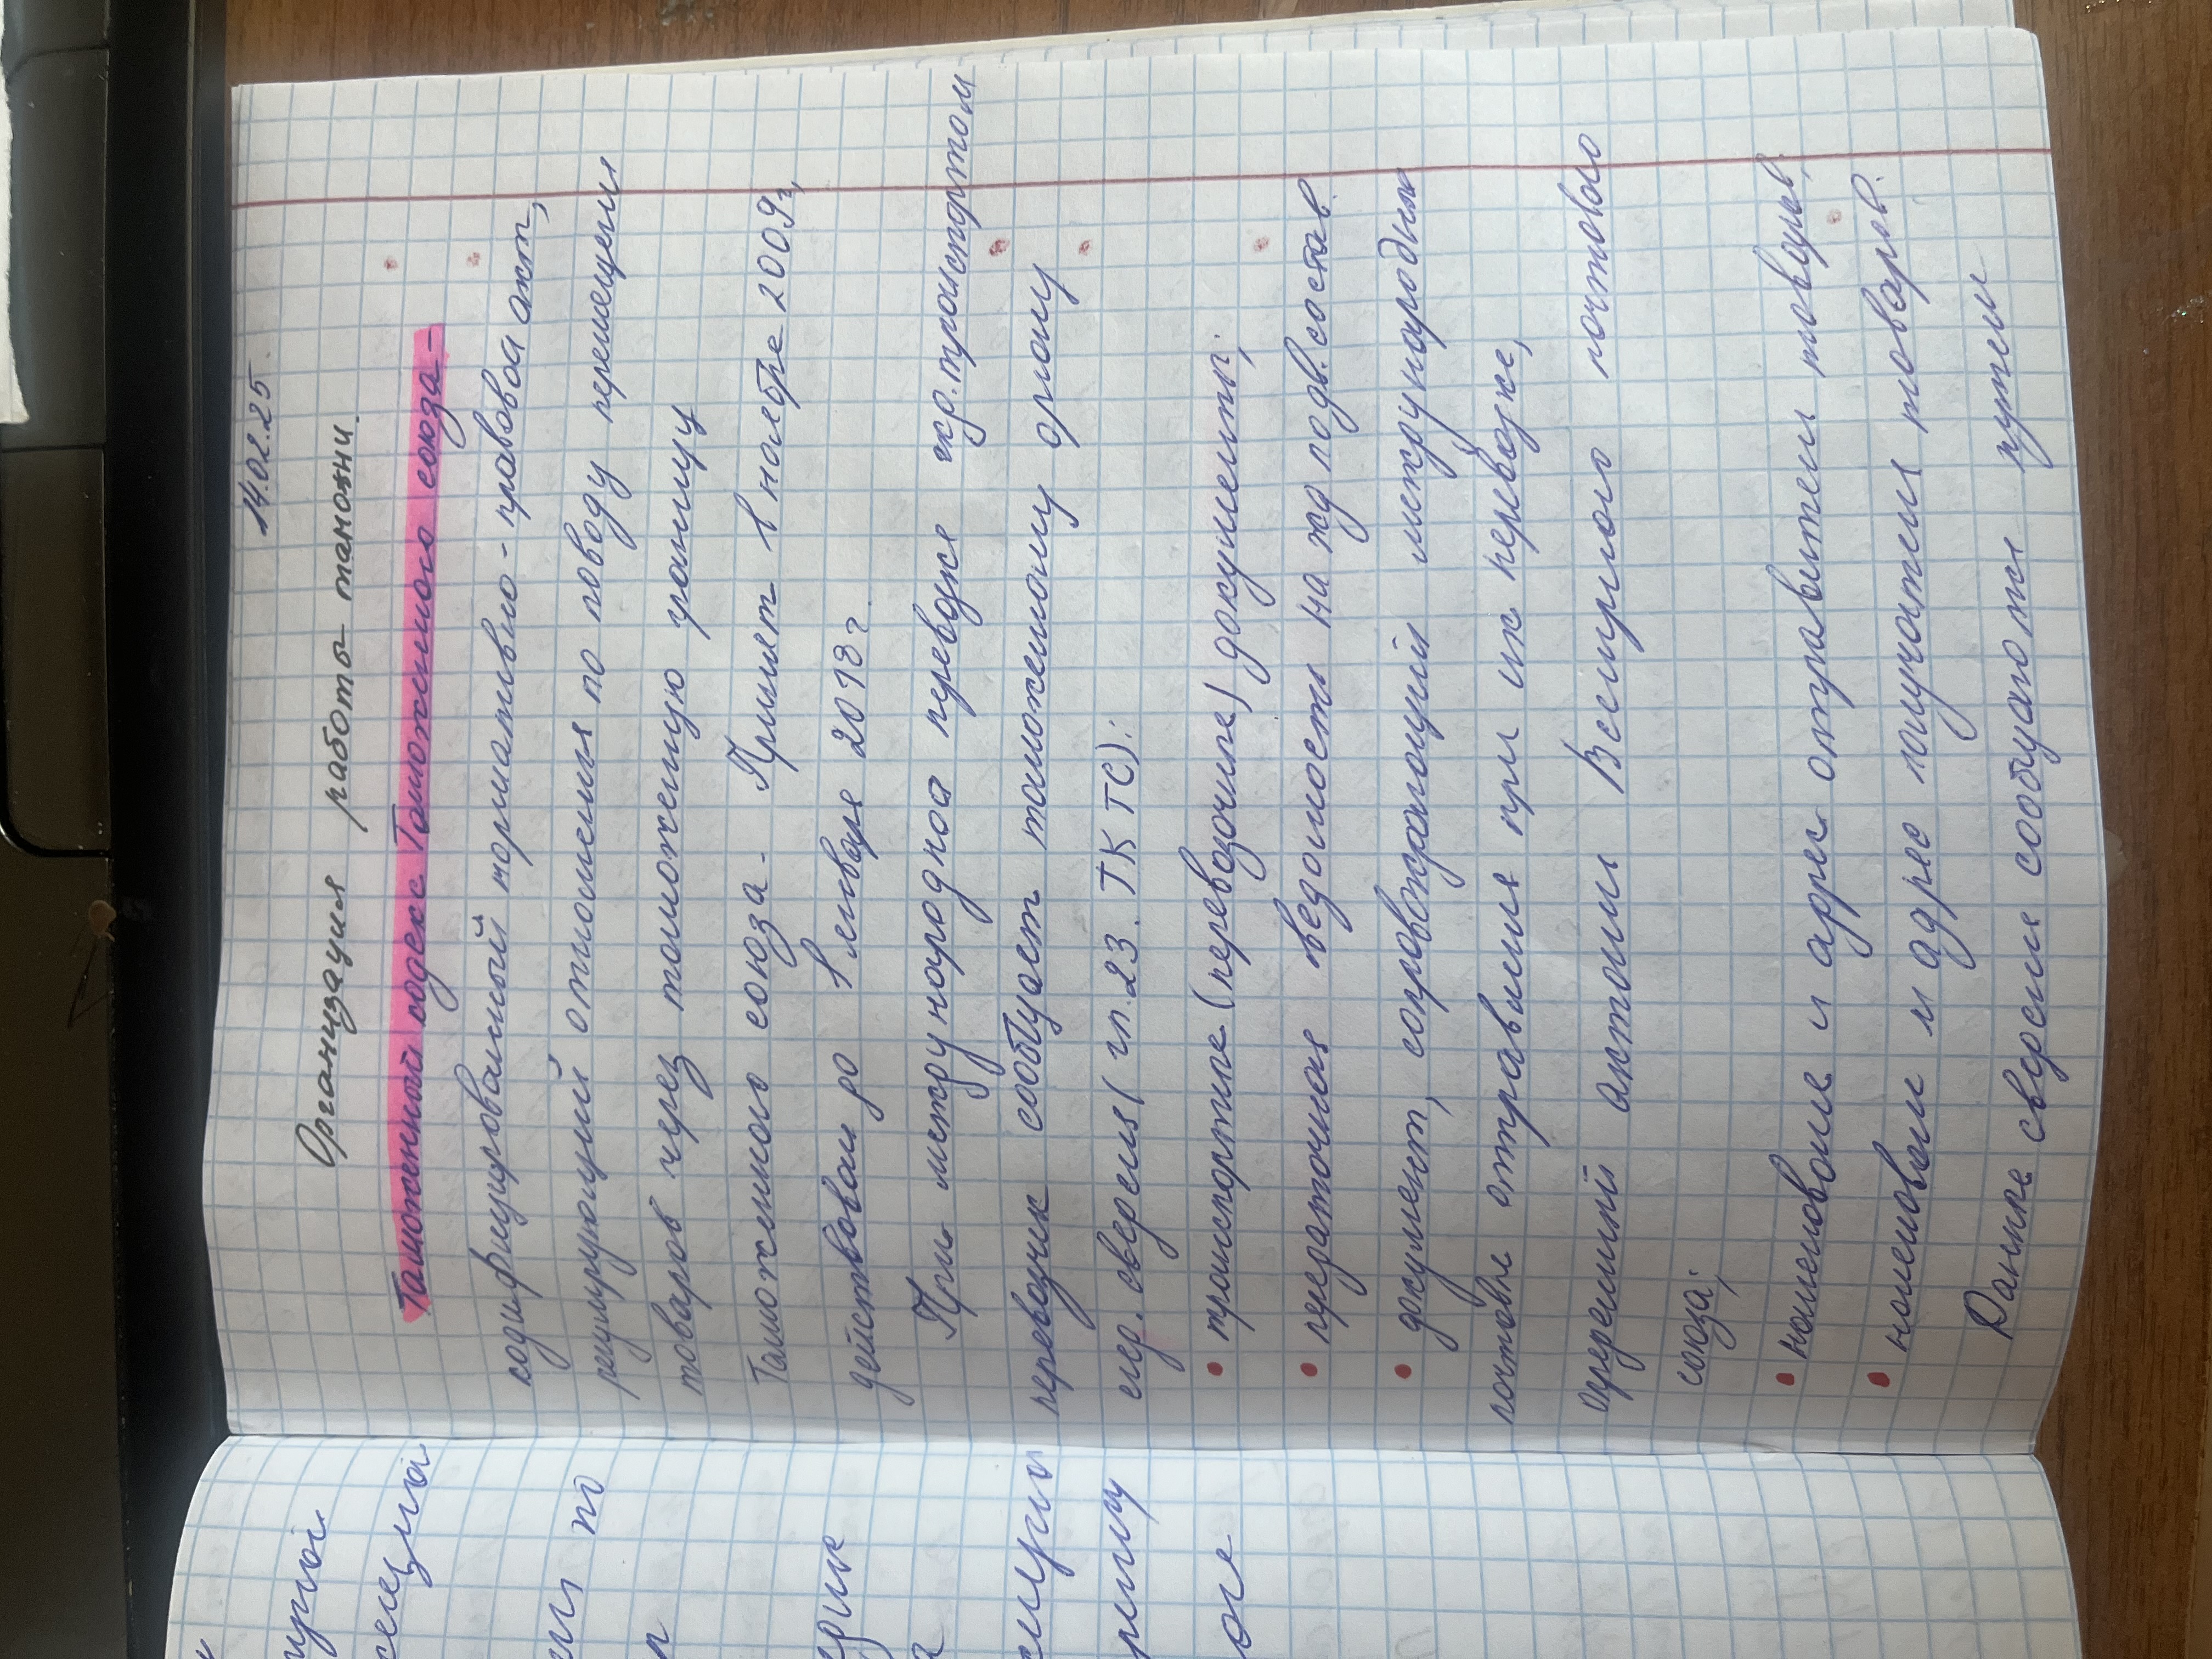 14.02.25.
Организация работы таможни.
Таможенный кодекс Таможенного союза-
кодифицированный нормативно-правовой акт,
регулирующий отношения по поводу перемещения
товаров через таможенную границу
Таможенного союза. Принят в ноябре 2009г,
действовал до 1 января 2018г.
При международной перевозке жд.транспортом
перевозчик сообщает таможенному органу
след. сведения (гл.23. ТК ТС):
• транспортные (перевозочные) документы;
• передаточная ведомость на жд подв.состав.
• документ, сопровождающий международные
почтовые отправления при их перевозке,
определенный актами Всемирного почтового
союза;
• наименование и адрес отправителя товаров,
• наименован и адрес получателя товаров.
Данные сведения сообщаются путем